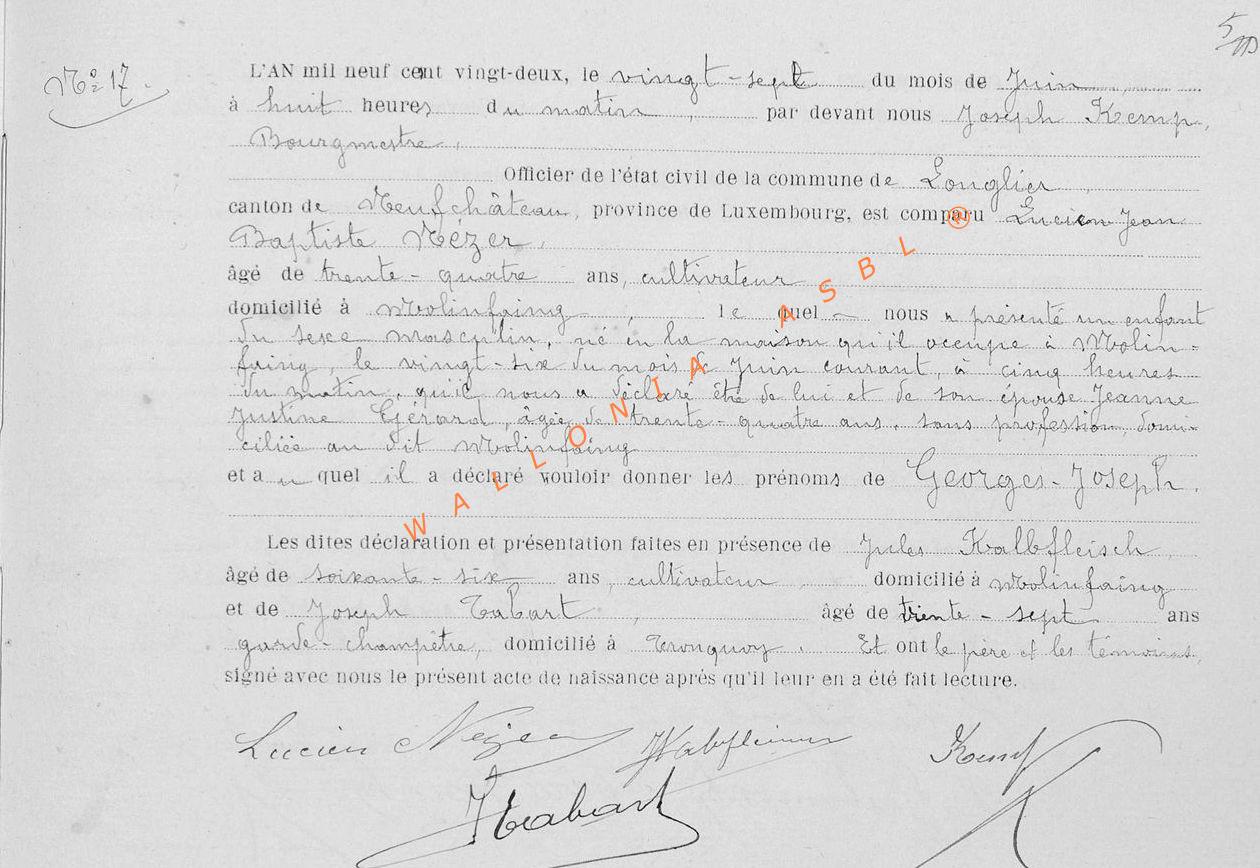 Nº 17.
L'AN mil neuf cent vingt-deux, le vingt-sept du mois de Juin
à huit heures du matin, par devant nous Joseph Kemp,
Bourgmestre,
Officier de l'état civil de la commune de Longlier
canton de Neufchâteau, province de Luxembourg, est comparu Lucien Jean
Baptiste Nézer,
âgé de trente-quatre ans, cultivateur
domicilié à Molinfaing, le quel nous a présenté un enfant
du sexe masculin, né en la maison qu'il occupe à Molin-
faing, le vingt-six du mois de Juin courant, à cinq heures
du matin, qu'il nous a déclaré être de lui et de son épouse Jeanne
Justine Gérard, âgée de trente-quatre ans, sans profession, domi-
ciliée au dit Molinfaing
et au quel il a déclaré vouloir donner les prénoms de Georges-Joseph.
Les dites déclaration et présentation faites en présence de Jules Kalbfleisch,
âgé de soixante-six ans, cultivateur domicilié à Molinfaing
et de Joseph Tabart, âgé de trente-sept ans
garde-champêtre, domicilié à Tronquoy. Et ont le père et les témoins,
signé avec nous le présent acte de naissance après qu'il leur en a été fait lecture.
Lucien Nézer Kemp
JTabart
WALLONIA ASBL ®